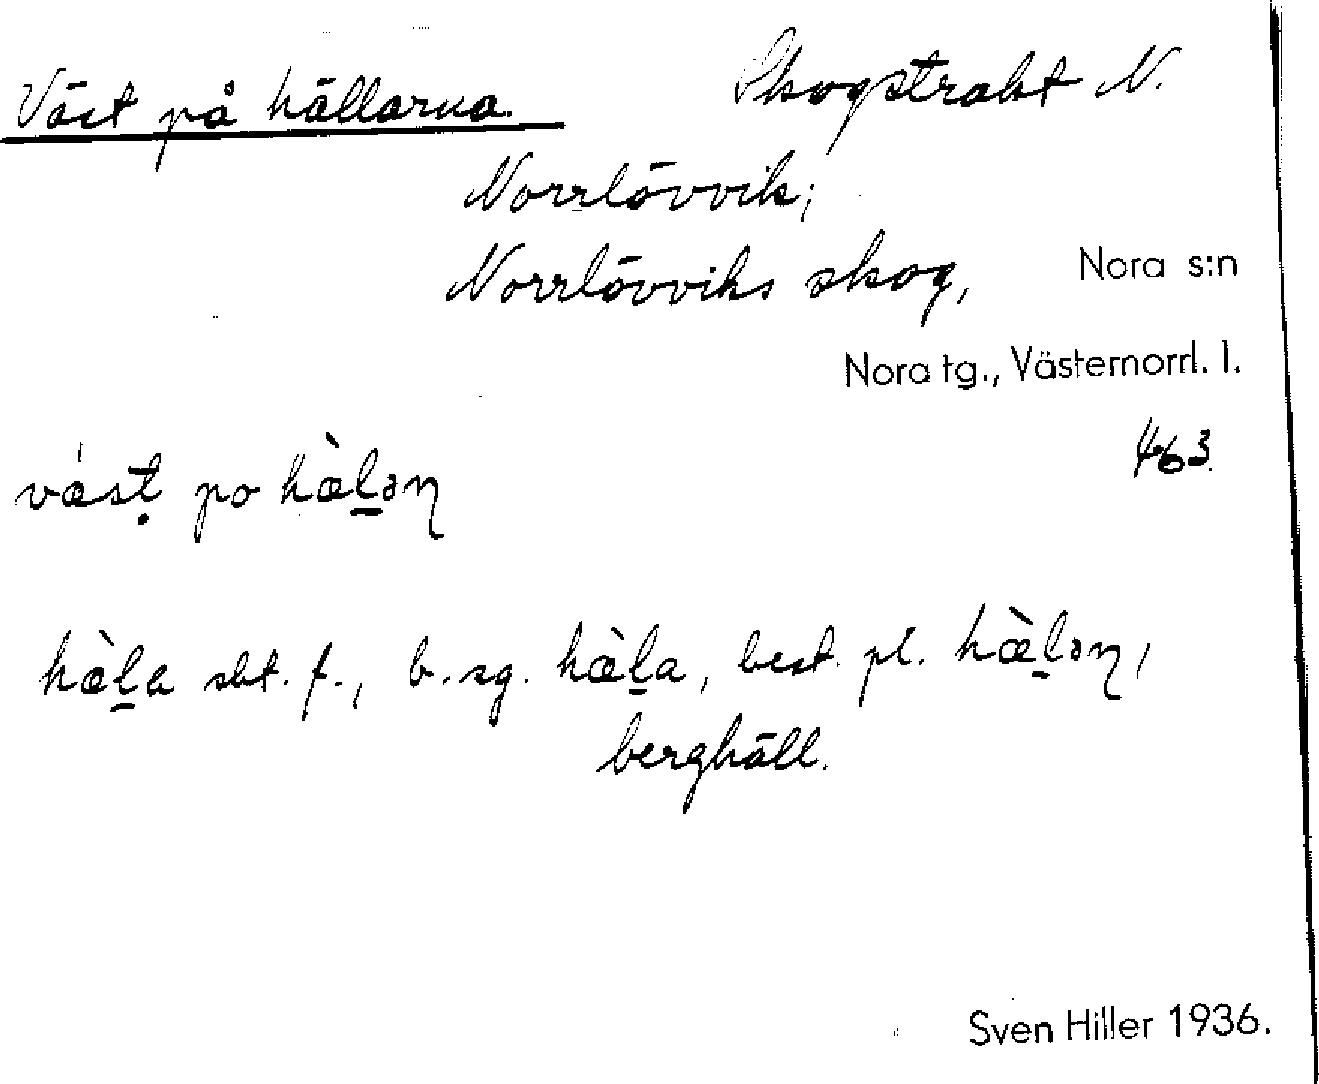 Väst på hällarna Skogstrakt N.
Norrlövvik;
Norrlövviks skog, Nora s:n
Nora tg., Västernorrl. l.
463
vǽsṭ po hæ̀l̲əɳ
hæ̀l̲a sbt. f., b. sg. hæ̀l̲a, best. pl. hæ̀l̲əɳ,
berghäll.
Sven Hiller 1936.